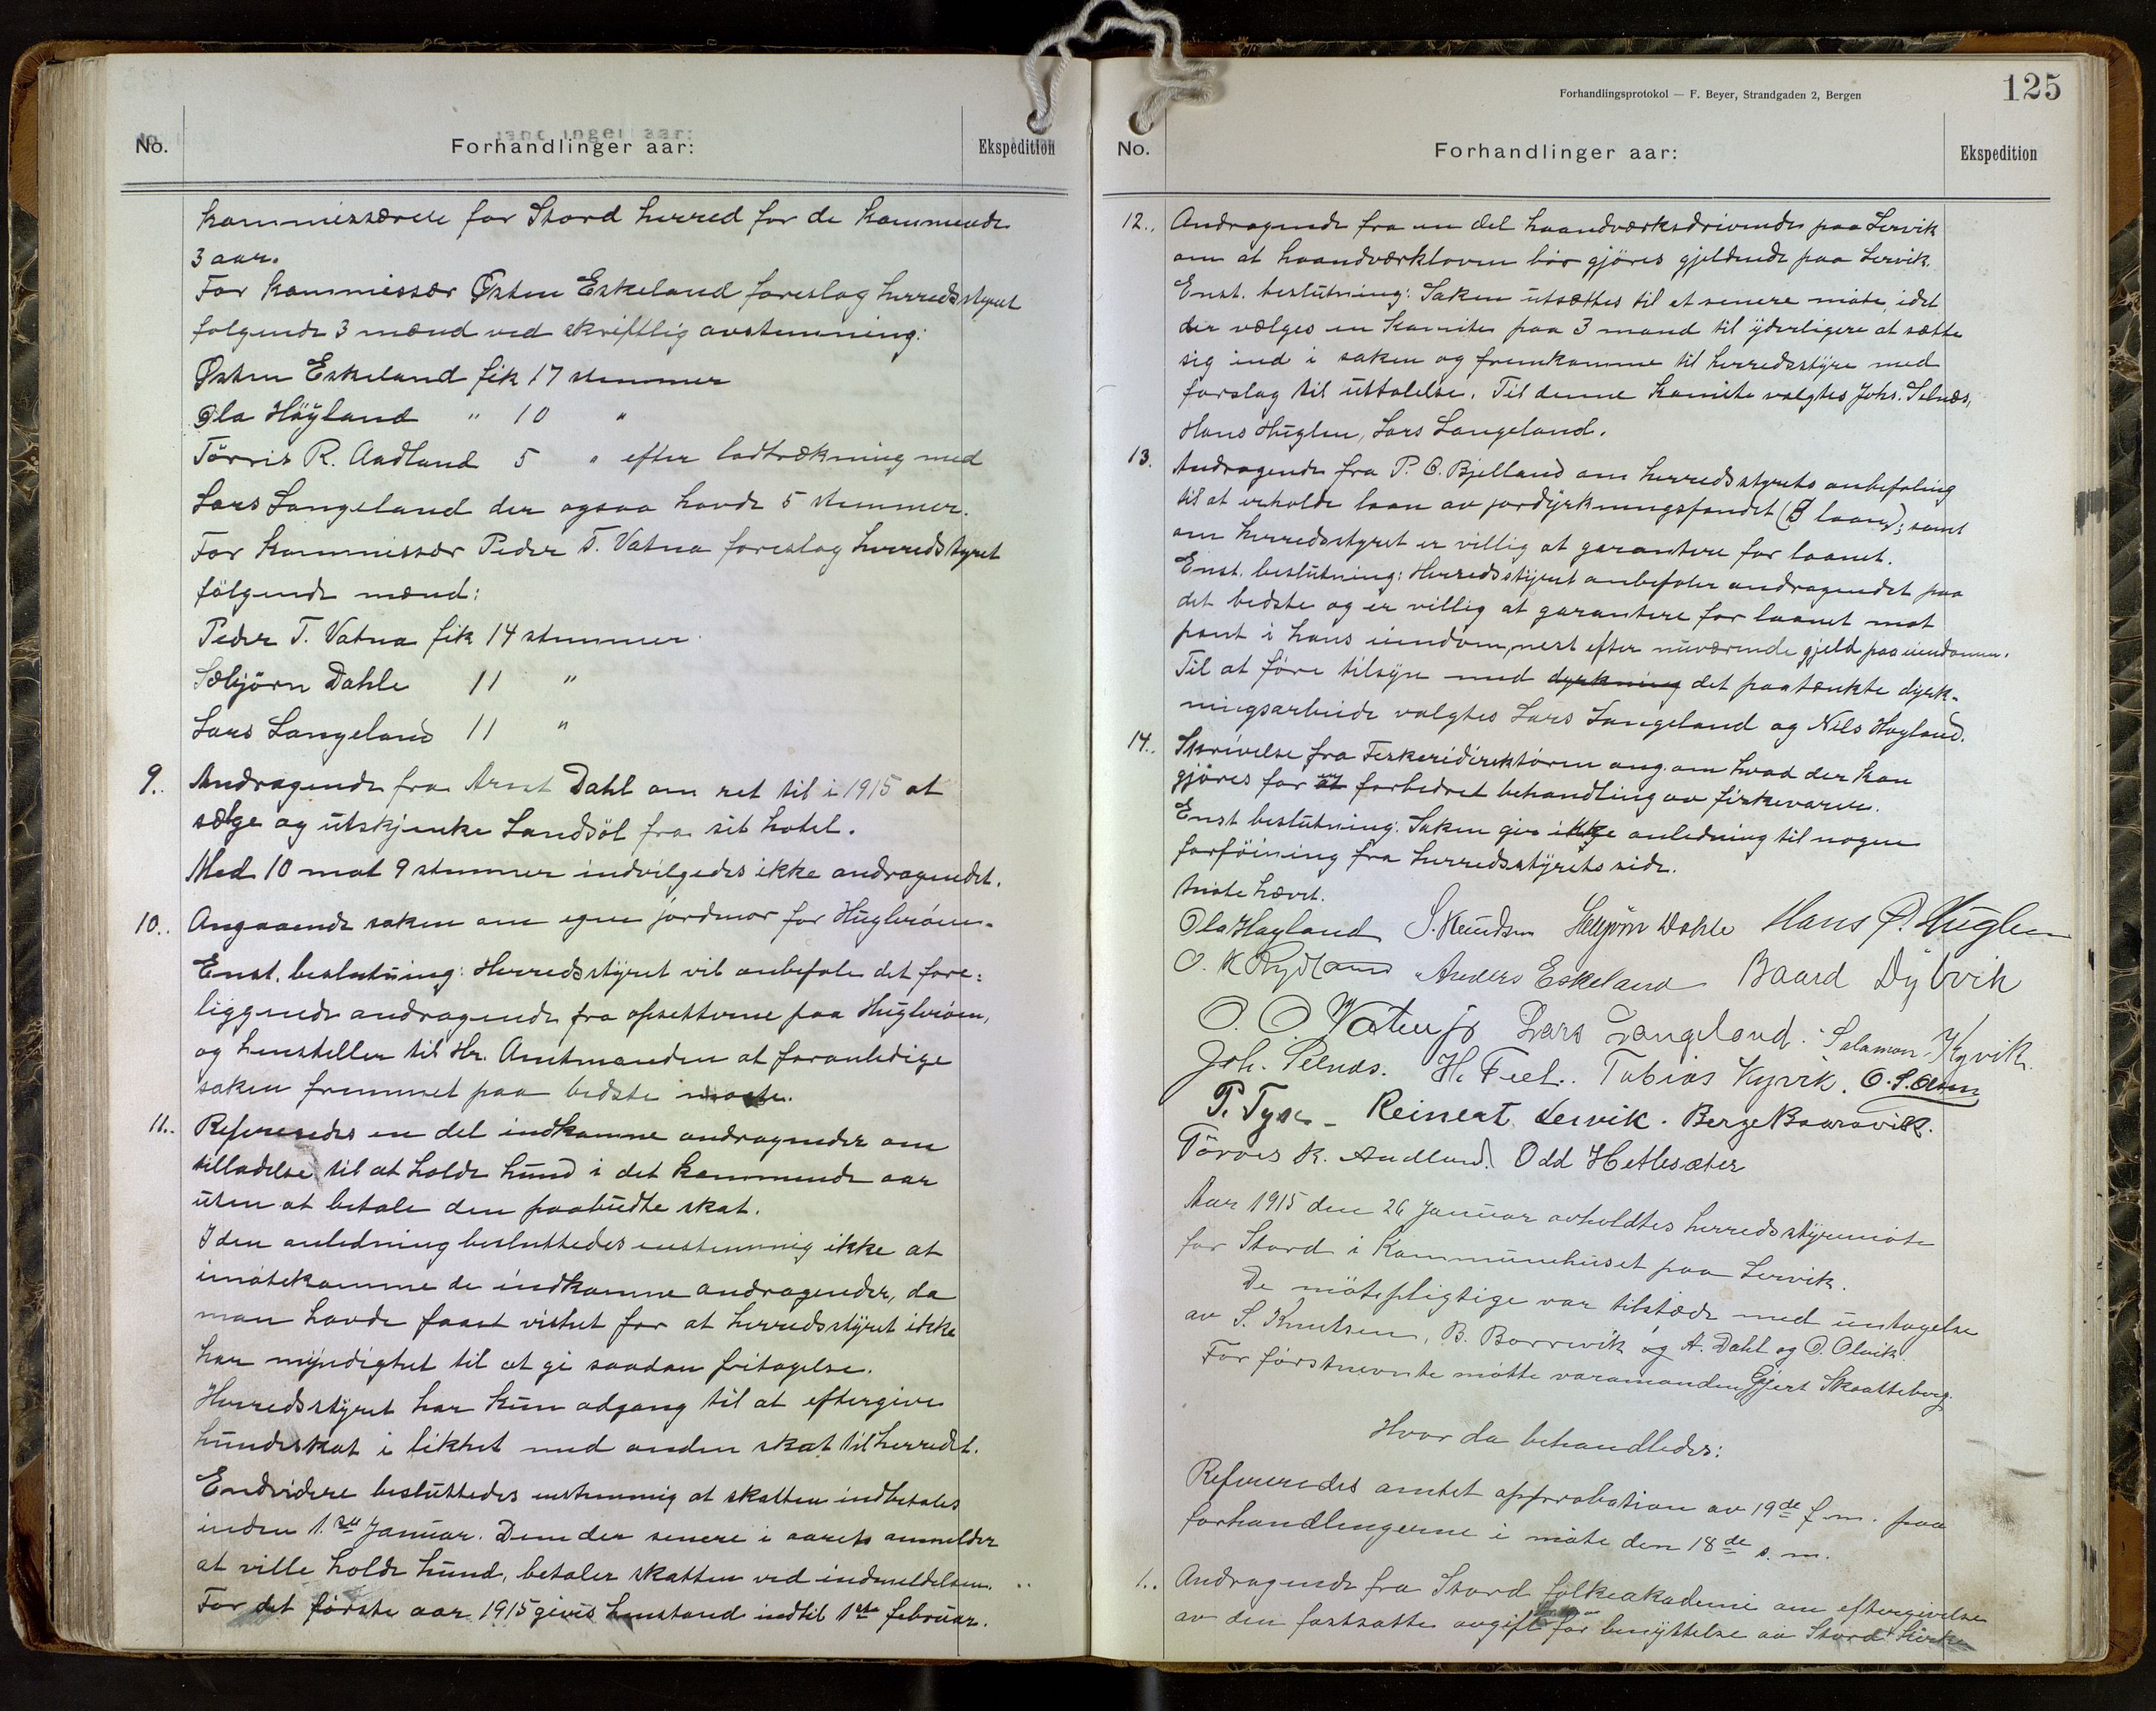 No.
Forhandlinger aar:
Ekspedition
kommissærere for Stord herred for de kommende
3 aar.
For kommissær Østen Eskeland foreslog herredsstyret
følgende 3 mænd ved skriftlig avstemning:
Østen Eskeland fik 17 stemmer
Ola Höyland " 10 "
Törris R. Aadland 5 " efter lodtrækning med
Lars Langeland der ogsaa havde 5 stemmer.
For kommissær Peder T. Vatna foreslog herredstyret
følgende mænd:
Peder T. Vatna fik 14 stemmer
Sæbjörn Dahle 11 "
Lars Langeland 11 "
9. Andragende fra Arnt Dahl om ret til i 1915 at
sælge og utskjenke Landsöl fra sit hotel.
Med 10 mot 9 stemmer indvilgedes ikke andragendet.
10. Angaaende saken om egen jordmor for Huglöröen.
Enst. beslutning: Herredsstyret vil anbefale det fore-
liggende andragende fra opsitterne paa Huglöröen,
og henstiller til Hr. Amtmanden at foranledige
saken fremmet paa bedste maate.
11. Refereredes en del indkomne andragender om
tilladelse til at holde hund i det kommende aar
uten at betale den paabudte skat.
I den anledning besluttedes enstemmig ikke at
imøtekomme de indkomne andragender, da
man havde faaet visshet for at herredsstyret ikke
har myndighet til at gi saadan fritagelse.
Herredsstyret har kun adgang til at eftergive
hundeskat i likhet med anden skat til herredet.
Endvidere besluttedes enstemmig at skatten indbetales
inden 1. Januar. Dem der senere i aarets anmelder
at ville holde hund, betaler skatten ved indmeldelsen.
For det første aar 1915 gives henstand indtil 1ste februar.
Forhandlingsprotokol — F. Beyer, Strandgaden 2, Bergen
125
No.
Forhandlinger aar:
Ekspedition
12. Andragende fra en del haandværksdrivende paa Lervik
om at haandværkloven bør gjöres gjeldende paa Lervik.
Enst. beslutning: Saken utsættes til et senere møte, idet
der vælges en komite paa 3 mand til yderligere at sætte
sig ind i saken og fremkomme til herredsstyre med
forslag til uttalelse. Til denne komite valgtes Johs. Selnæs,
Hans Huglen, Lars Langeland.
13. Andragende fra P. C. Bjelland om herredsstyrets anbefaling
til at erholde laan av jorddyrkningsfondet (B laan); samt
om herredsstyret er villig at garantere for laanet.
Enst. beslutning: Herredsstyret anbefaler andragendet paa
det bedste og er villig at garantere for laanet mot
pant i hans eiendom, nest efter nuværende gjeld paa eiendommen.
Til at före tilsyn med dyrkning det paatænkte dyrk-
ningsarbeide valgtes Lars Langeland og Nils Høyland.
14. Skrivelse fra Feskeridirektören ang. om hvad der kan
gjöres for en forbedret behandling av fiskevaren.
Enst beslutning: Saken gir ikke anledning til nogen
forföining fra herredsstyrets side.
Møte hævet.
Ola Høyland S. Knudsen Sæbjørn Dahle Hans P. Huglen
O. K Rydland Anders Eskeland Baard Dybvik
O. O Vatne jr Lars Langeland. Salamon Kyvik.
Joh. Selnæs. H. Feet. Tobias Kyvik. O. S. Olsen
P. Tyse - Reinert Lervik. Berge Baarsvik.
Törres R. Aadland. Odd Hetlesæter
Aar 1915 den 26 Januar avholdtes herredsstyremøte
for Stord i Kommunehuset paa Lervik.
De møtepligtige var tilstæde med undtagelse
av S. Knutsen, B. Borrevik og A. Dahl og O. Alvik.
For førstnevnte møtte varamanden Gjert Skaatteberg.
Hvor da behandledes:
Refereredes amtet approbation av 19de f.m. paa
forhandlingerne i møte den 18de s.m.
1. Andragende fra Stord folkeakademi om eftergivelse
av den fastsatte avgift for benyttelse av Stord kirke